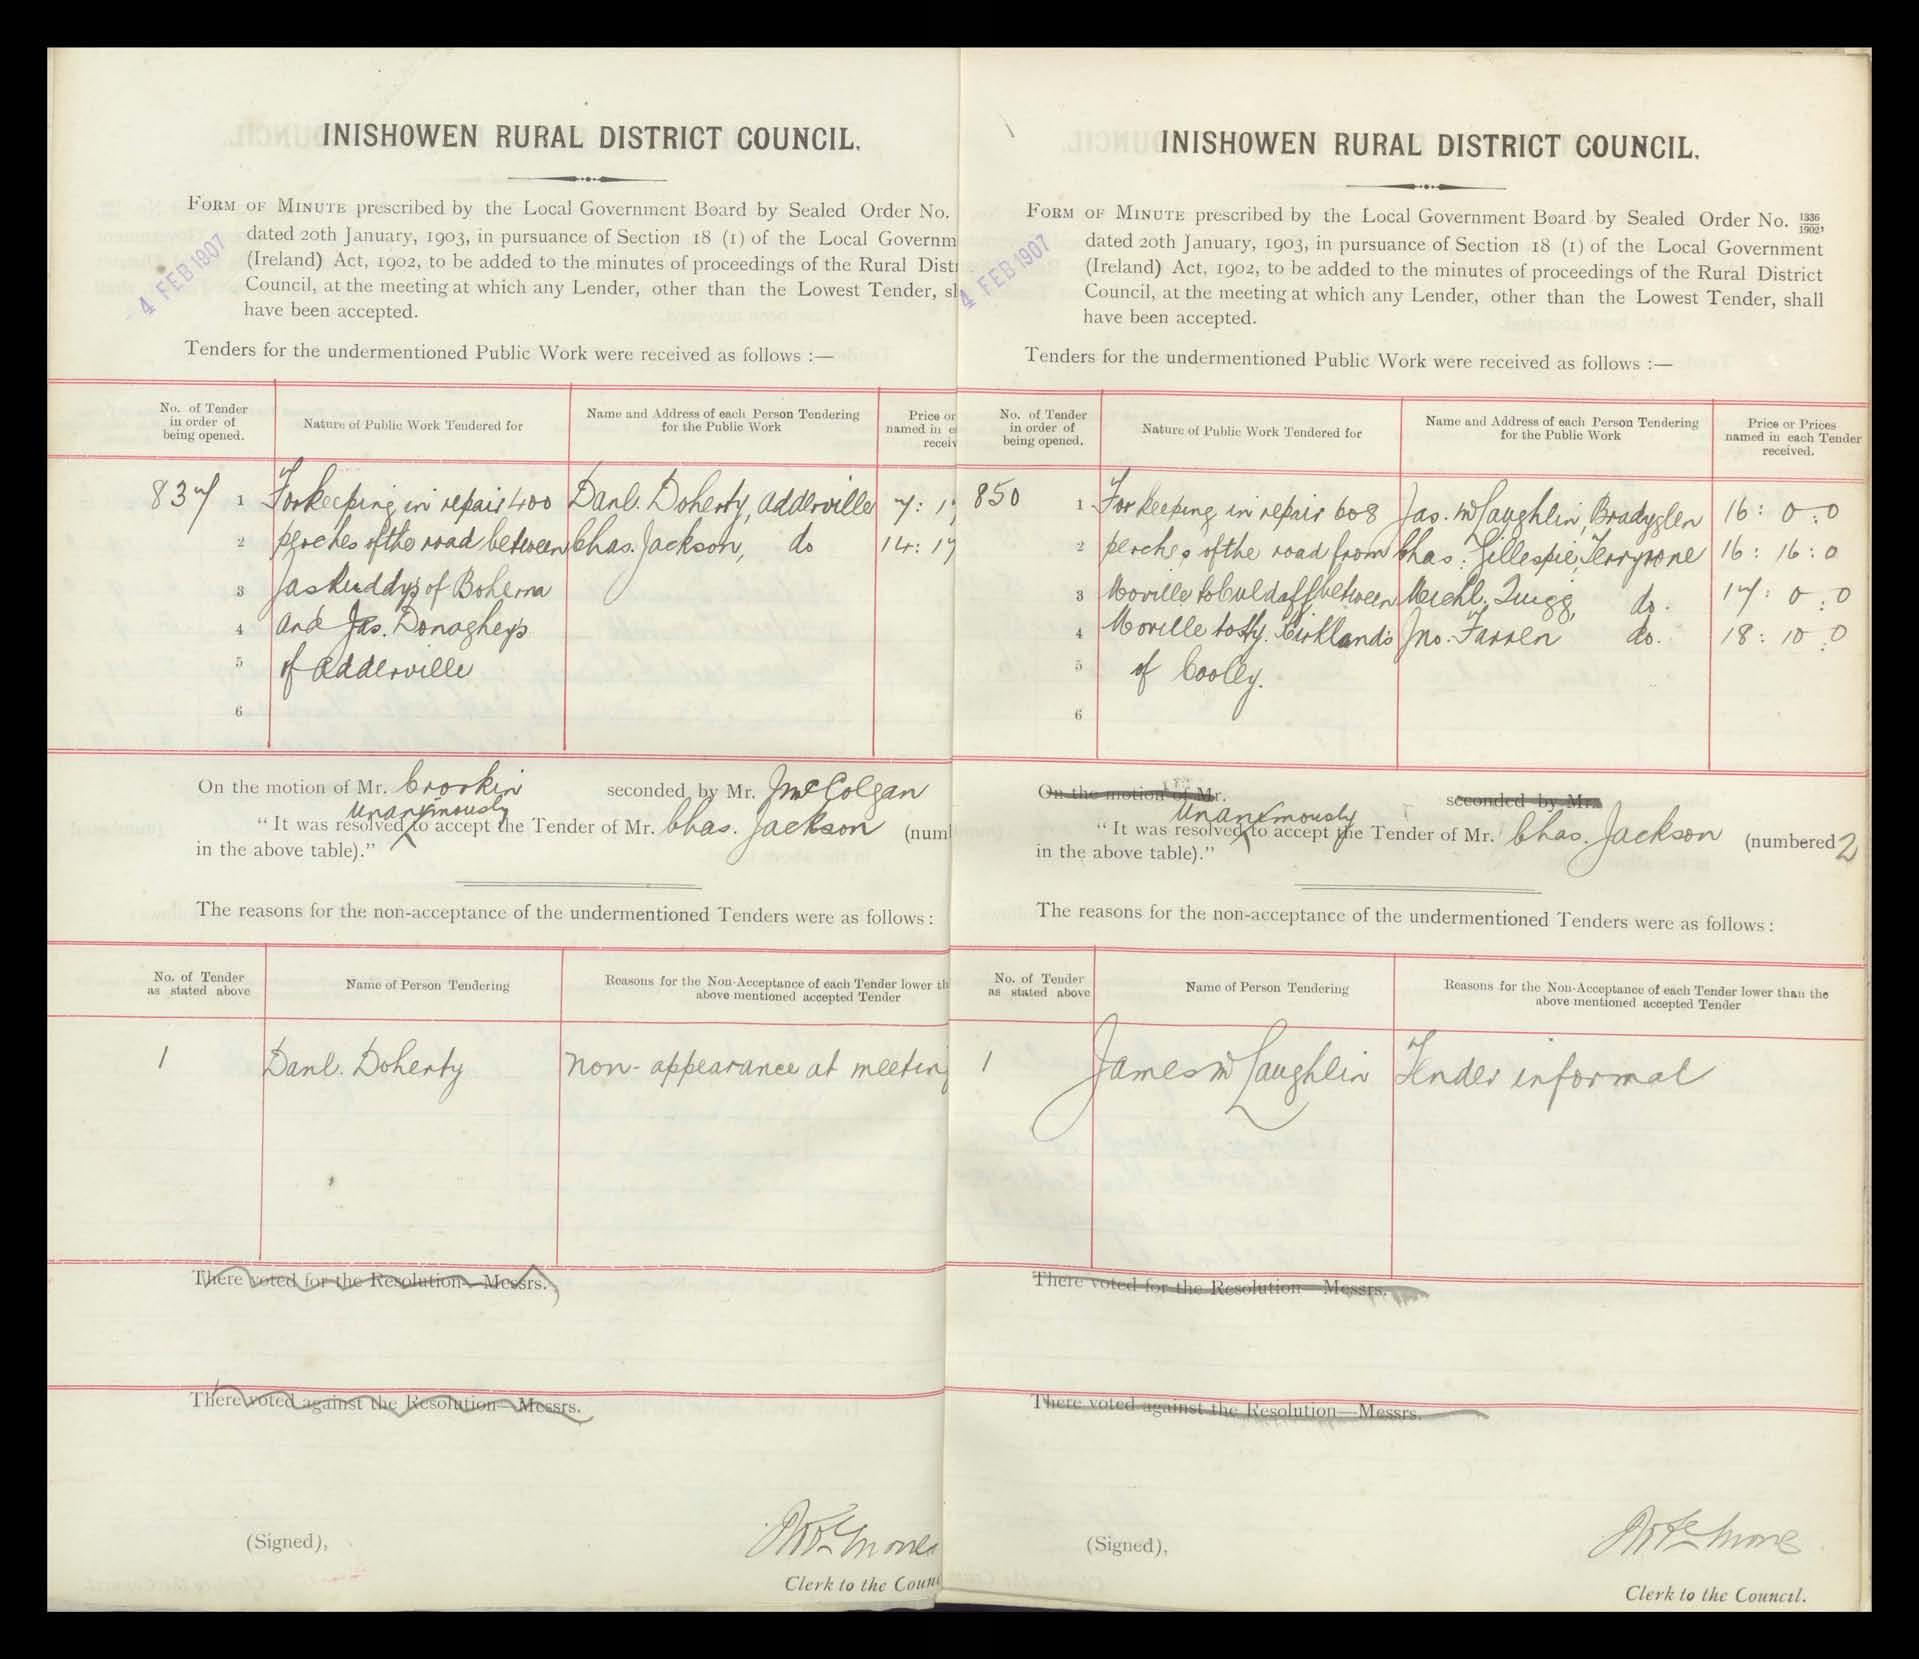 INISHOWEN RURAL DISTRICT COUNCIL.
FORM OF MINUTE prescribed by the Local Government Board by Sealed Order No.
dated 20th January, 1903, in pursuance of Section 18 (1) of the Local Governm
(Ireland) Act, 1902, to be added to the minutes of proceedings of the Rural Distr
Council, at the meeting at which any Lender, other than the Lowest Tender, sh
have been accepted.
4 FEB 1907
Tenders for the undermentioned Public Work were received as follows :—
No. of Tender
in order of
being opened.
Nature of Public Work Tendered for
Name and Address of each Person Tendering
for the Public Work
Price or
named in e
receiv
837 1 For keeping in repair 400 Danl. Doherty, Adderville 7 : 1
2 perches of the road between Chas. Jackson, do 14 : 1
3 Jas Ruddy's of Boherna
4 and Jas. Donaghey's
5 of Adderville
6
On the motion of Mr. Crookin seconded by Mr. J McColgan
Unanimously
"It was resolved to accept the Tender of Mr. Chas. Jackson (num
in the above table)."
The reasons for the non-acceptance of the undermentioned Tenders were as follows :
No. of Tender
as stated above
Name of Person Tendering
Reasons for the Non-Acceptance of each Tender lower th
above mentioned accepted Tender
1 Danl. Doherty Non-appearance at meeting
There voted for the Resolution—Messrs.
There voted against the Resolution—Messrs.
(Signed),
Clerk to the Counc
INISHOWEN RURAL DISTRICT COUNCIL.
FORM OF MINUTE prescribed by the Local Government Board by Sealed Order No. 1336/1902,
dated 20th January, 1903, in pursuance of Section 18 (1) of the Local Government
(Ireland) Act, 1902, to be added to the minutes of proceedings of the Rural District
Council, at the meeting at which any Lender, other than the Lowest Tender, shall
have been accepted.
4 FEB 1907
Tenders for the undermentioned Public Work were received as follows :—
No. of Tender
in order of
being opened.
Nature of Public Work Tendered for
Name and Address of each Person Tendering
for the Public Work
Price or Prices
named in each Tender
received.
850 1 For keeping in repair 608 Jas. McLaughlin, Bradyglen 16 : 0 : 0
2 perches of the road from Chas. Gillespie, Terryrone 16 : 16 : 0
3 Moville to Culdaff between Michl. Quigg, do. 17 : 0 : 0
4 Moville to Hy. Kirkland's Jno. Farren do. 18 : 10 : 0
5 of Cooley.
6
On the motion of Mr. seconded by Mr.
Unanimously
"It was resolved to accept the Tender of Mr. Chas. Jackson (numbered 2
in the above table)."
The reasons for the non-acceptance of the undermentioned Tenders were as follows :
No. of Tender
as stated above
Name of Person Tendering
Reasons for the Non-Acceptance of each Tender lower than the
above mentioned accepted Tender
1 James McLaughlin Tender informal
There voted for the Resolution—Messrs.
There voted against the Resolution—Messrs.
(Signed),
Clerk to the Council.